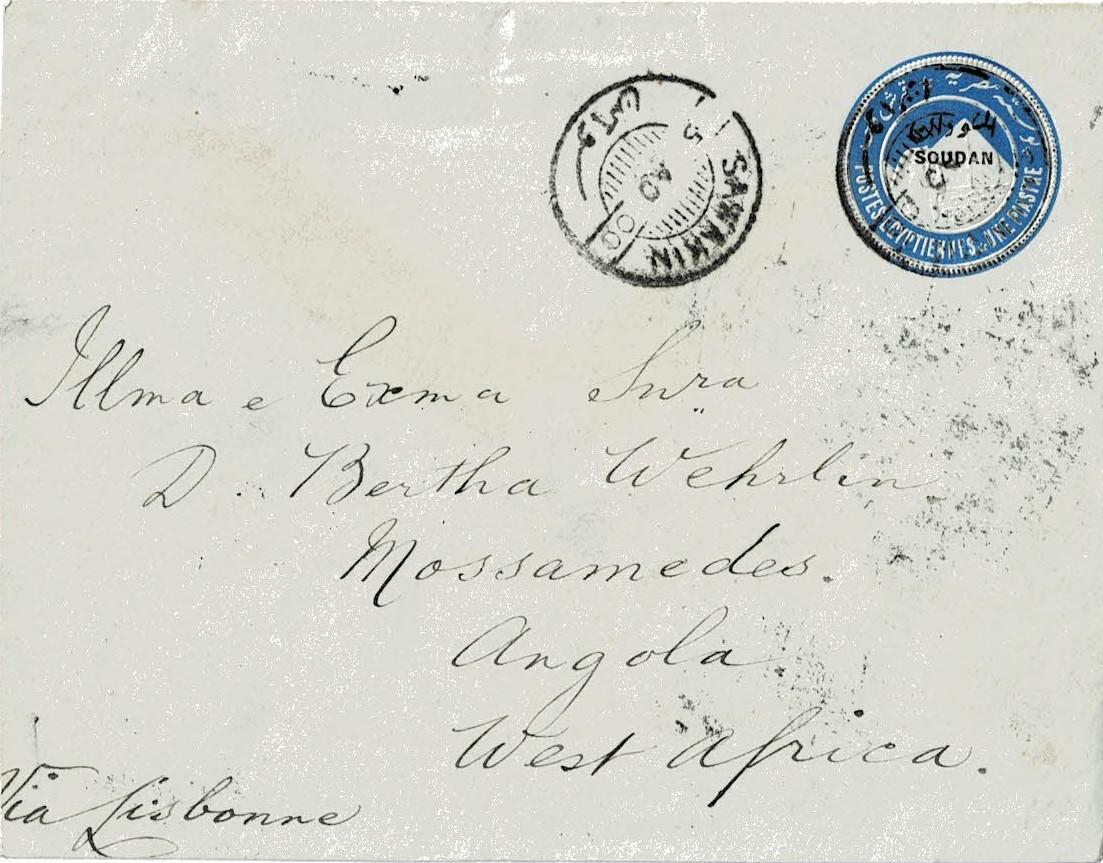 SAWAKIN
SOUDAN
POSTES EGYPTIENNES. UNE PIASTRE
Illma e Exma Snra
D. Bertha Wehrlin
Mossamedes.
Angola
West Africa.
Via Lisbonne